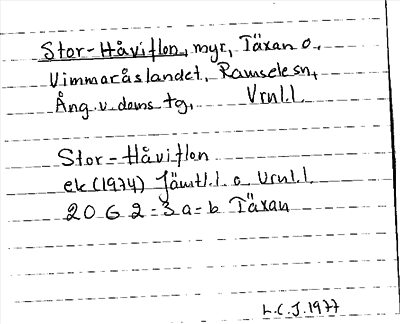 Stor-Håviflon, myr, Täxan o.
Vimmaråslandet, Ramsele sn,
Ång. v. doms tg, Vrnl.l.
Stor-Håviflon
ek (1974) Jämtl.l. o Vrnl.l.
20 G 2-3 a-b Täxan
L.C.J. 1977